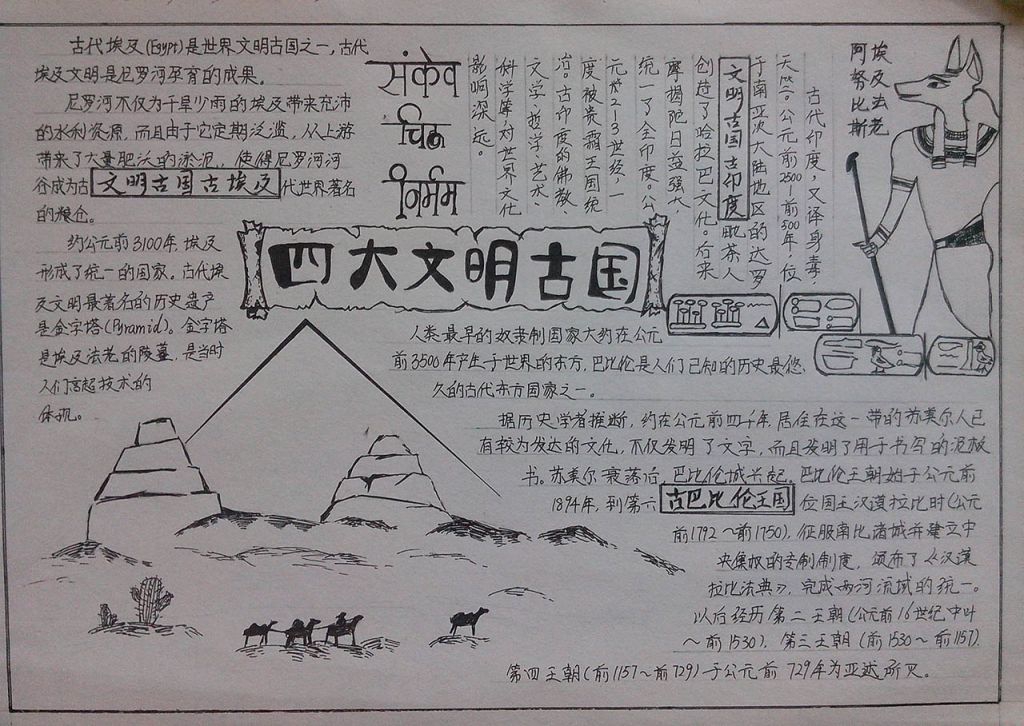 古代埃及(Egypt)是世界文明古国之一,古代
埃及文明是尼罗河孕育的成果。
尼罗河不仅为干旱少雨的埃及带来充沛
的水利资源,而且由于它定期泛滥,从上游
带来了大量肥沃的淤泥,使得尼罗河河
谷成为古文明古国古埃及代世界著名
的粮仓。
约公元前3100年,埃及
形成了统一的国家。古代埃
及文明最著名的历史遗产
是金字塔(Pyramid)。金字塔
是埃及法老的陵墓,是当时
人们高超技术的
体现。
संकेव
चिह्न
निर्मम
古代印度,又译身毒,
天竺。公元前2500—前500年,位
于南亚次大陆地区的达罗
文明古国古印度毗荼人
创造了哈拉巴文化。后来
摩揭陀日益强大,
统一了全印度。公
元后2-3世纪,一
度被贵霜王国统
治。古印度的佛教、
文学、哲学、艺术、
科学等对世界文化
影响深远。
埃及法老
阿努比斯
四大文明古国
人类最早的奴隶制国家大约在公元
前3500年产生于世界的东方,巴比伦是人们已知的历史最悠
久的古代东方国家之一。
据历史学者推断,约在公元前四千年,居住在这一带的苏美尔人已
有较为发达的文化,不仅发明了文字,而且发明了用于书写的泥板
书。苏美尔衰落后,巴比伦城兴起。巴比伦王朝始于公元前
1894年,到第六古巴比伦王国位国王汉谟拉比时(公元
前1792~前1750),征服南北诸城并建立中
央集权的专制制度,颁布了《汉谟
拉比法典》,完成两河流域的统一。
以后经历第二王朝(公元前16世纪中叶
~前1530),第三王朝(前1530~前1157),
第四王朝(前1157~前729)于公元前729年为亚述所灭。